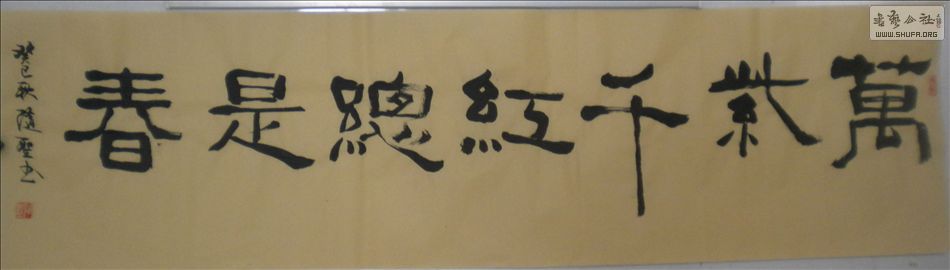 萬紫千紅總是春
癸巳秋隨聖書
書藝公社
WWW.SHUFA.ORG